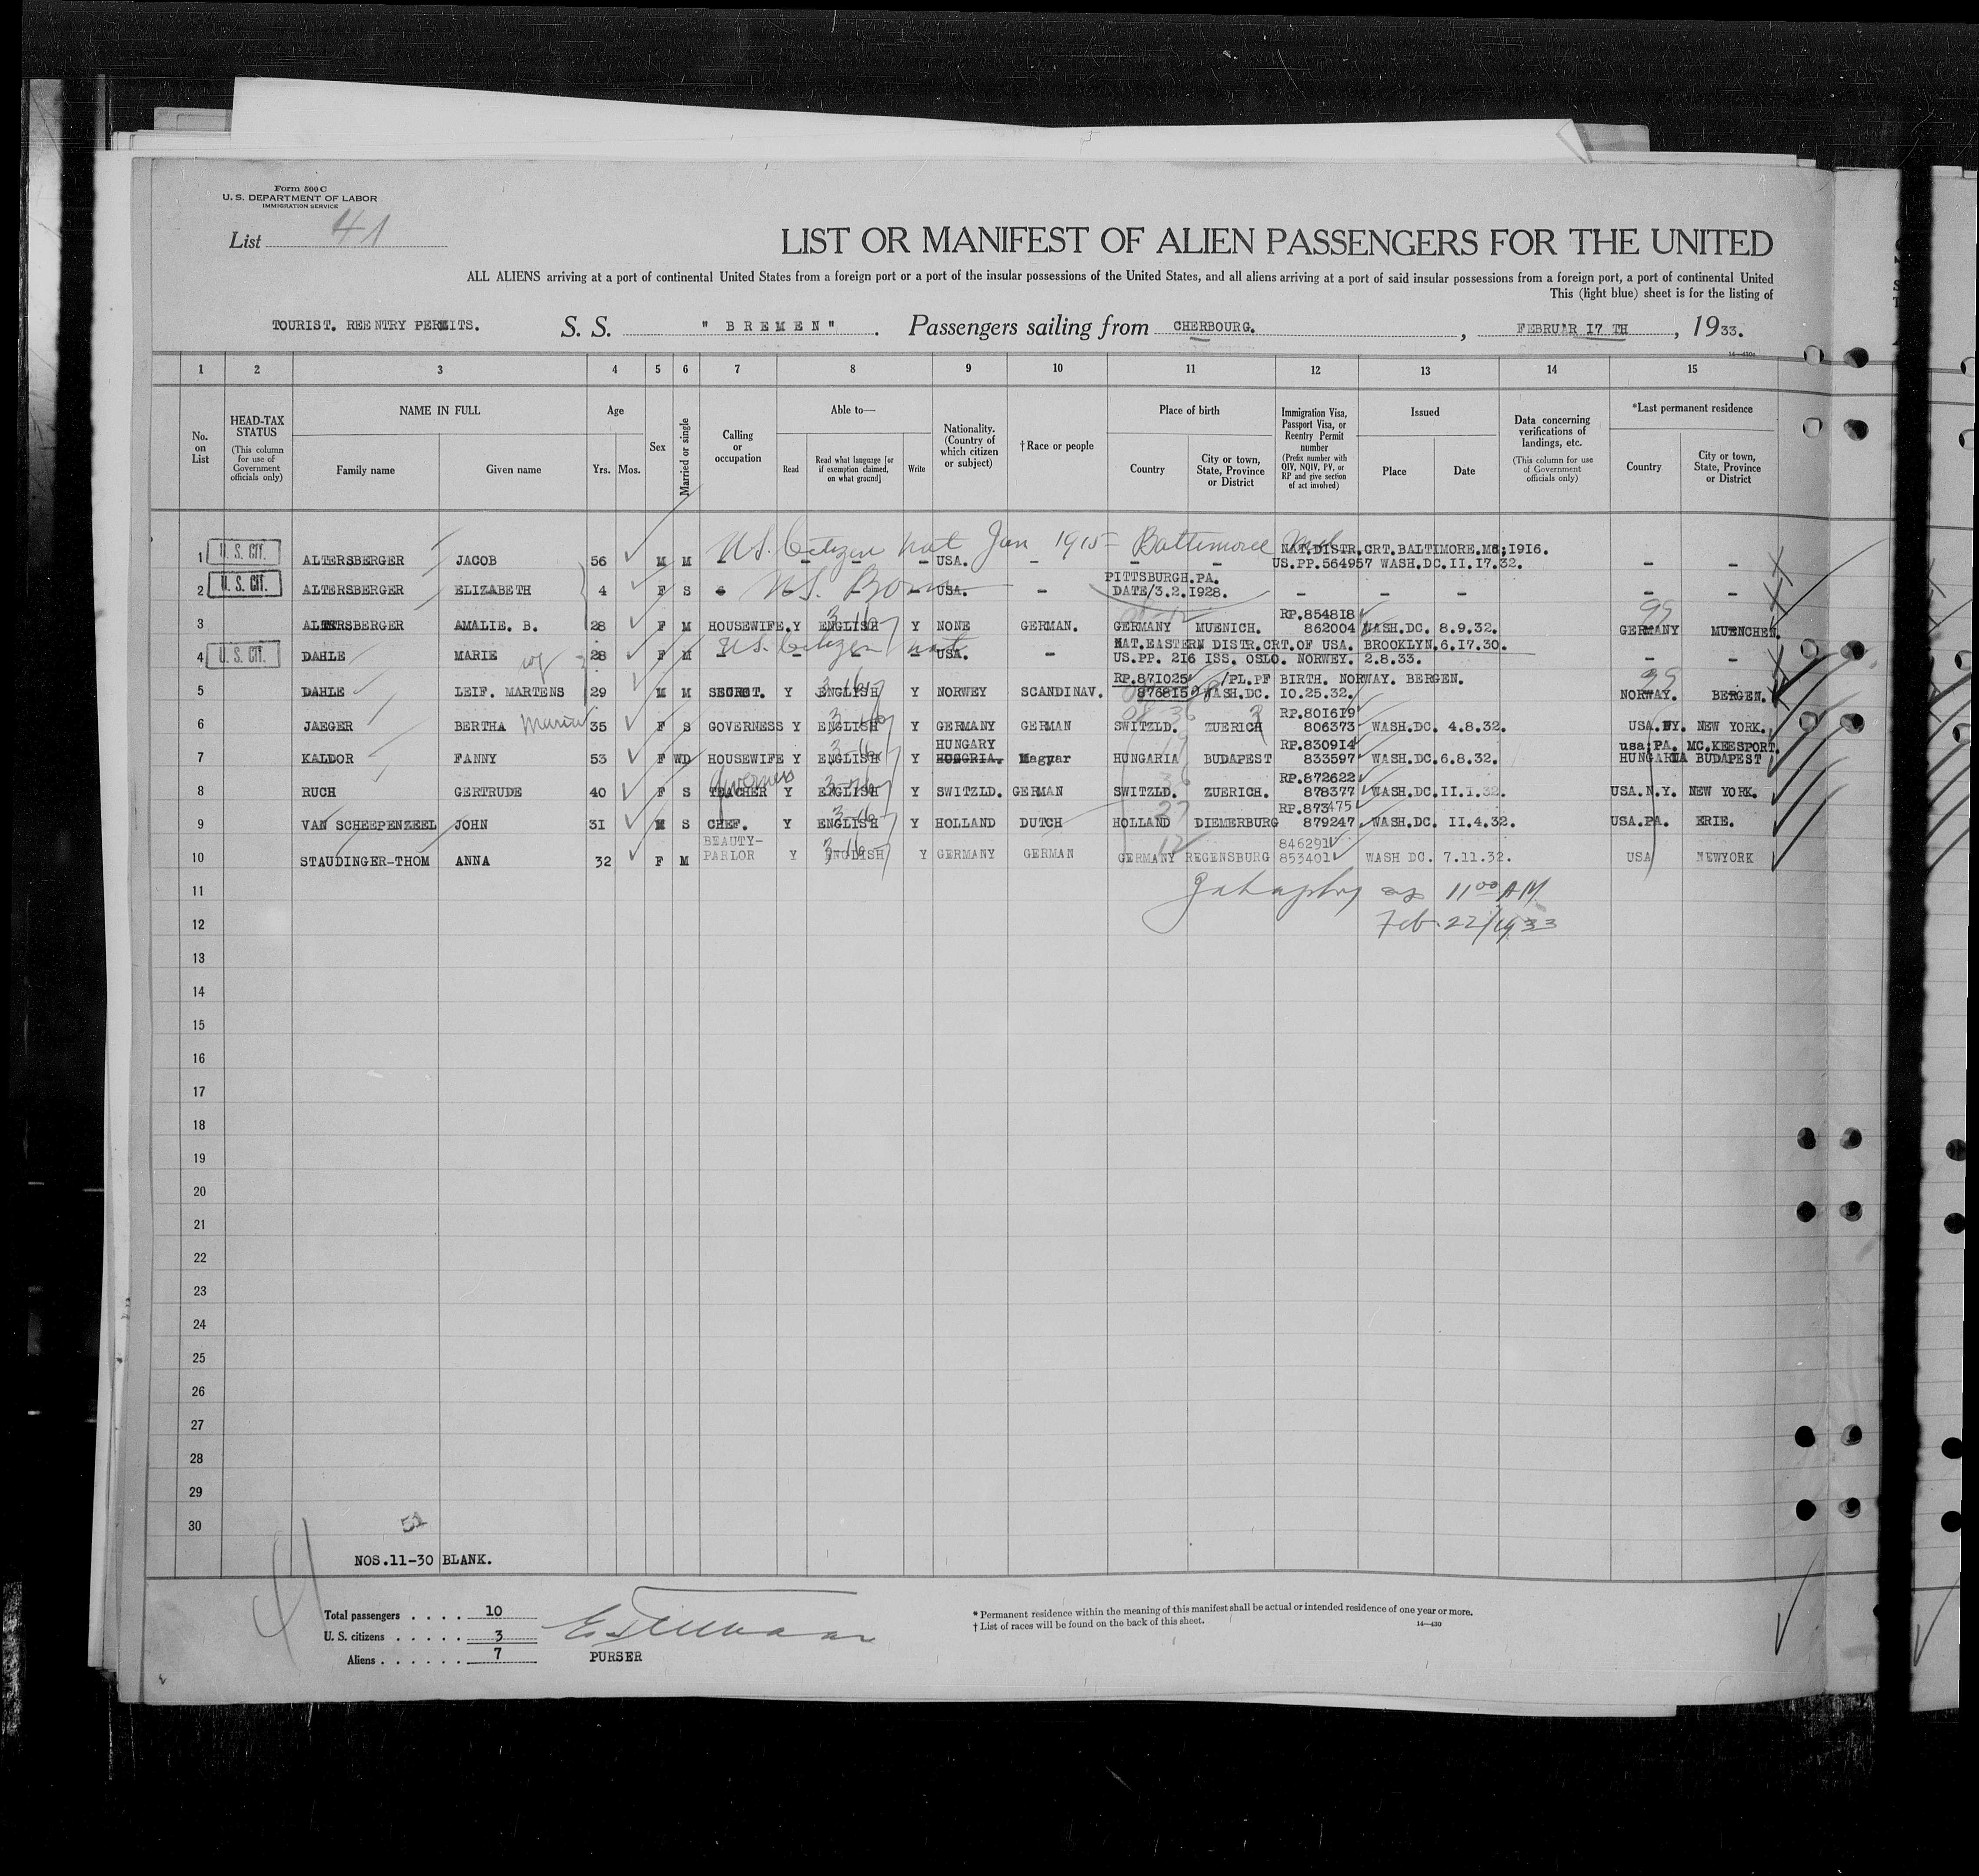 Form 500 C
U. S. DEPARTMENT OF LABOR
IMMIGRATION SERVICE
List 41
LIST OR MANIFEST OF ALIEN PASSENGERS FOR THE UNITED
ALL ALIENS arriving at a port of continental United States from a foreign port or a port of the insular possessions of the United States, and all aliens arriving at a port of said insular possessions from a foreign port, a port of continental United
This (light blue) sheet is for the listing of
TOURIST. REENTRY PERMITS. S. S. " B R E M E N " . Passengers sailing from CHERBOURG. , FEBRUAR 17 TH , 1933.
1 2 3 4 5 6 7 8 9 10 11 12 13 14 15
No. on List
HEAD-TAX STATUS (This column for use of Government officials only)
NAME IN FULL Family name Given name
Age Yrs. Mos.
Sex
Married or single
Calling or occupation
Able to— Read Read what language [or if exemption claimed, on what ground] Write
Nationality. (Country of which citizen or subject)
† Race or people
Place of birth Country City or town, State, Province or District
Immigration Visa, Passport Visa, or Reentry Permit number (Prefix number with QIV, NQIV, PV, or RP and give section of act involved)
Issued Place Date
Data concerning verifications of landings, etc. (This column for use of Government officials only)
*Last permanent residence Country City or town, State, Province or District
US. Citizen nat Jan 1915 Baltimore Md
NAT.DISTR.CRT.BALTIMORE.MD;1916.
1 U. S. CIT. ALTERSBERGER JACOB 56 M M – – – – USA. – – – US.PP.564957 WASH.DC.II.17.32. – –
US. Born PITTSBURGH.PA.
2 U. S. CIT. ALTERSBERGER ELIZABETH 4 F S – – – USA. – DATE/3.2.1928. – – – – –
RP.854818
3 ALTERSBERGER AMALIE. B. 28 F M HOUSEWIFE. Y ENGLISH Y NONE GERMAN. GERMANY MUENICH. 862004 WASH.DC. 8.9.32. GERMANY MUENCHEN.
US Citizen nat NAT.EASTERN DISTR.CRT.OF USA. BROOKLYN.6.17.30.
4 U. S. CIT. DAHLE MARIE wf 28 F M – – – – USA. – US.PP. 216 ISS. OSLO. NORWEY. 2.8.33. – –
RP.871025 /PL.PF BIRTH. NORWAY. BERGEN.
5 DAHLE LEIF. MARTENS 29 M M SECRST. Y ENGLISH Y NORWEY SCANDINAV. 876815 WASH.DC. IO.25.32. NORWAY. BERGEN.
RP.801619
6 JAEGER BERTHA Maria 35 F S GOVERNESS Y ENGLISH Y GERMANY GERMAN SWITZLD. ZUERICH 806373 WASH.DC. 4.8.32. USA.NY. NEW YORK.
HUNGARY RP.830914 usa;PA. MC.KEESPORT.
7 KALDOR FANNY 53 F WD HOUSEWIFE Y ENGLISH Y HOGGRIA. Magyar HUNGARIA BUDAPEST 833597 WASH.DC.6.8.32. HUNGARIA BUDAPEST
Governess RP.872622
8 RUCH GERTRUDE 40 F S TEACHER Y ENGLISH Y SWITZLD. GERMAN SWITZLD. ZUERICH. 878377 WASH.DC.II.1.32. USA.N.Y. NEW YORK.
RP.873475
9 VAN SCHEEPENZEEL JOHN 31 M S CHEF. Y ENGLISH Y HOLLAND DUTCH HOLLAND DIEMERBURG 879247 WASH.DC. II.4.32. USA.PA. ERIE.
BEAUTY- 846291
10 STAUDINGER-THOM ANNA 32 F M PARLOR Y ENGLISH Y GERMANY GERMAN GERMANY REGENSBURG 853401 WASH DC. 7.11.32. USA NEWYORK
11 11 00 AM
12 Feb. 22/1933
13
14
15
16
17
18
19
20
21
22
23
24
25
26
27
28
29
30
NOS.11-30 BLANK.
Total passengers . . . . 10
U. S. citizens . . . . . 3
Aliens . . . . . . 7
PURSER
* Permanent residence within the meaning of this manifest shall be actual or intended residence of one year or more.
† List of races will be found on the back of this sheet.
14—430